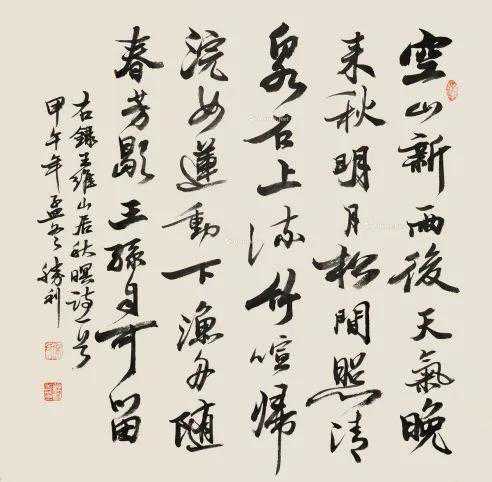 空山新雨後天氣晚
来秋明月松間照清
泉石上流竹喧歸
浣女蓮動下漁舟随
春芳歇王孫自可留
右録王維山居秋暝詩一首
甲午年孟冬勝利